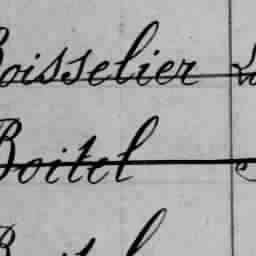 Boisselier
Boitel